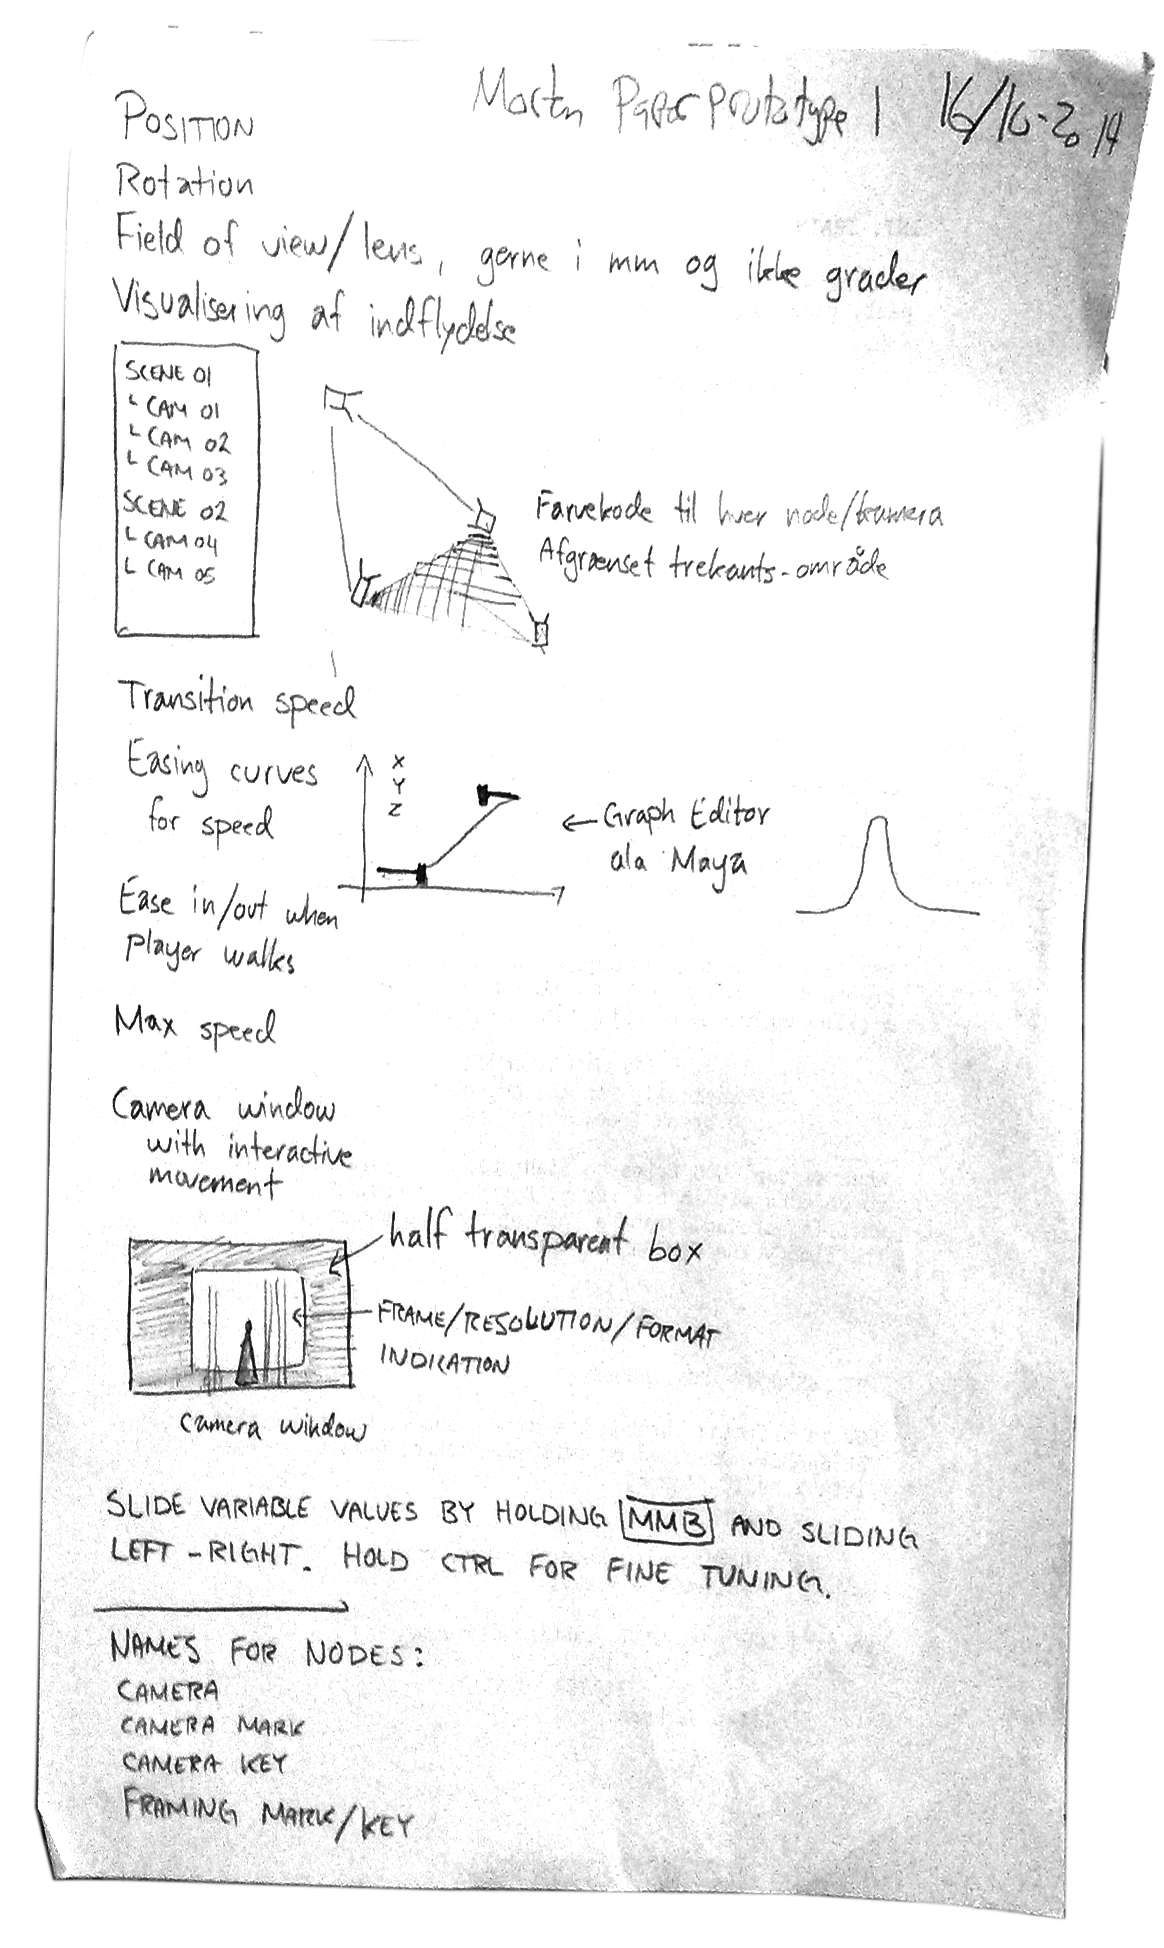 Morten Paper Prototype 1 16/10-2014
POSITION
Rotation
Field of view/lens, gerne i mm og ikke grader
Visualisering af indflydelse
SCENE 01
└ CAM 01
└ CAM 02
└ CAM 03
SCENE 02
└ CAM 04
└ CAM 05
Farvekode til hver node/kamera
Afgrænset trekants-område
Transition speed
Easing curves
for speed
X
Y
Z
← Graph Editor
ala Maya
Ease in/out when
player walks
Max speed
Camera window
with interactive
movement
half transparent box
FRAME/RESOLUTION/FORMAT
INDICATION
Camera window
SLIDE VARIABLE VALUES BY HOLDING MMB AND SLIDING
LEFT-RIGHT. HOLD CTRL FOR FINE TUNING.
NAMES FOR NODES:
CAMERA
CAMERA MARK
CAMERA KEY
FRAMING MARK/KEY